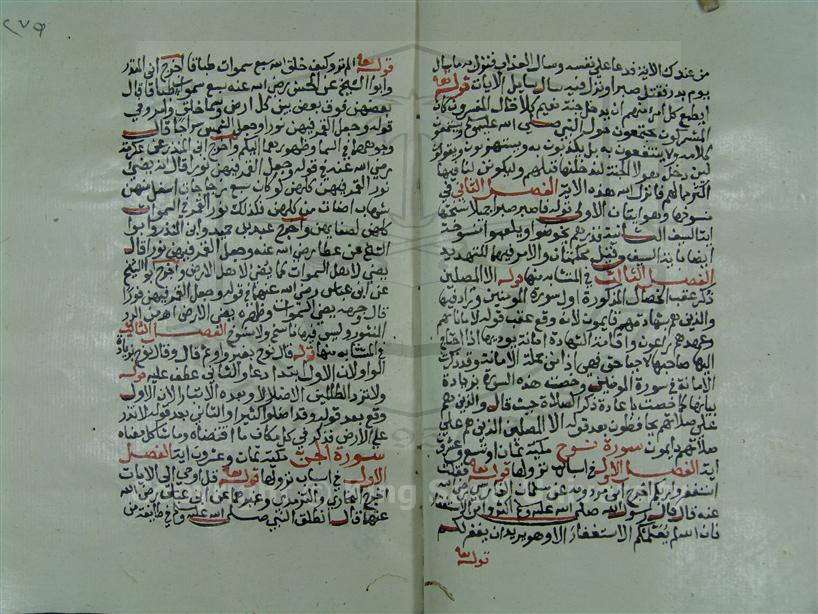 من عندك الآية فدعا على نفسه وسال العذاب فنزل به ما سال
يوم بدر فقتل صبرا ونزل فيه سال سايل الايات قوله تعالى
ايطمع كل امرء منهم ان يدخل جنة نعيم كلا قال المفسرون كان
المشركون يجتمعون حول النبي صلى الله عليه وسلم يستمعون
كلامه ولا ينتفعون به بل يكذبون به ويستهزون ويقولون
لين دخل هولا الجنة لندخلنها قبلهم وليكونن لنا فيها
اكثر مما لهم فانزل الله هذه الاية الفصل الثاني في
منسوخها وهو ايتان الاولى قوله فاصبر صبرا جميلا نسختها
اية السيف الثانية فذرهم يخوضوا ويلعبوا منسوخة
ايضا باية السيف وقيل محكمتان والامر فيها للتهديد
الفصل الثالث في المتشابه منها قوله الا المصلين
ذكر عقب الخصال المذكورة اول سورة المومنين وزاد فيها
والذين هم بشهاداتهم قايمون لانه وقع عقب قوله لاماناتهم
وعهدهم راعون واقامة الشهادة امانة يوديها اذا احتاج
اليها صاحبها لاحيا حق فهي اذا من جملة الامانة وقد ذكرت
الامانة في سورة المومنين وخصت هذه السورة بزيادة
بيانها كما خصت باعادة ذكر الصلاة حيث قال والذين هم
على صلاتهم يحافظون بعد قوله الا المصلين الذين هم على
صلاتهم دايمون سورة نوح مكية ثمان او تسع وعشرون
اية الفصل الاول في اسباب نزولها قوله تعالى فقلت
استغفروا ربكم اخرج ابن مردويه عن سلمان الفارسي رضي الله
عنه قال قال رسول الله صلى الله عليه وسلم اكثروا من الاستغفار
فان الله لم يعلمكم الاستغفار الا وهو يريد ان يغفر لكم
قوله تعالى
٢٧٥
قوله تعالى الم تروا كيف خلق الله سبع سموات طباقا اخرج ابن المنذر
وابو الشيخ عن الحسن رضي الله عنه سبع سموات طباقا قال
بعضهن فوق بعض بين كل ارض وسما خلق وامر وفي
قوله وجعل القمر فيهن نورا وجعل الشمس سراجا قال
وجوههما في السما وظهورهما اليكم واخرج ابن المنذر عن عكرمة
رضي الله عنه في قوله وجعل القمر فيهن نورا قال انه يضي
نور القمر فيهن كلهن لو كان سبع زجاجات اسفل منهن
شهاب اضات من كلهن فكذلك نور القمر في السموات
كلهن لصفايهن واخرج عبد بن حميد وابن المنذر وابو
الشيخ عن عطا رضي الله عنه وجعل القمر فيهن نورا قال
يضي لاهل السموات كما يضي لاهل الارض واخرج ابو الشيخ
عن ابن عباس رضي الله عنهما في قوله وجعل القمر فيهن نورا
قال وجهه يضي السموات وظهره يضي الارض
المنثور وليس فيها ناسخ ولا منسوخ الفصل الثالث
في المتشابه منها قوله قال نوح بغير واو ثم قال وقال نوح بزيادة
الواو لان الاول ابتدا دعا والثاني عطف عليه قوله
ولا تزد الظالمين الا ضلالا وبعده الا تبارا لان الاول
وقع بعد قوله وقد اضلوا كثيرا والثاني بعد قوله لا تذر
على الارض فذكر في كل مكان ما اقتضاه وما شاكل معناه
سورة الجن مكية ثمان وعشرون اية الفصل
الاول في اسباب نزولها قوله تعالى قل اوحي الى الايات
اخرج البخاري والترمذي وغيرهما عن ابن عباس رضي الله
عنهما قال انطلق النبي صلى الله عليه وسلم في طايفة من